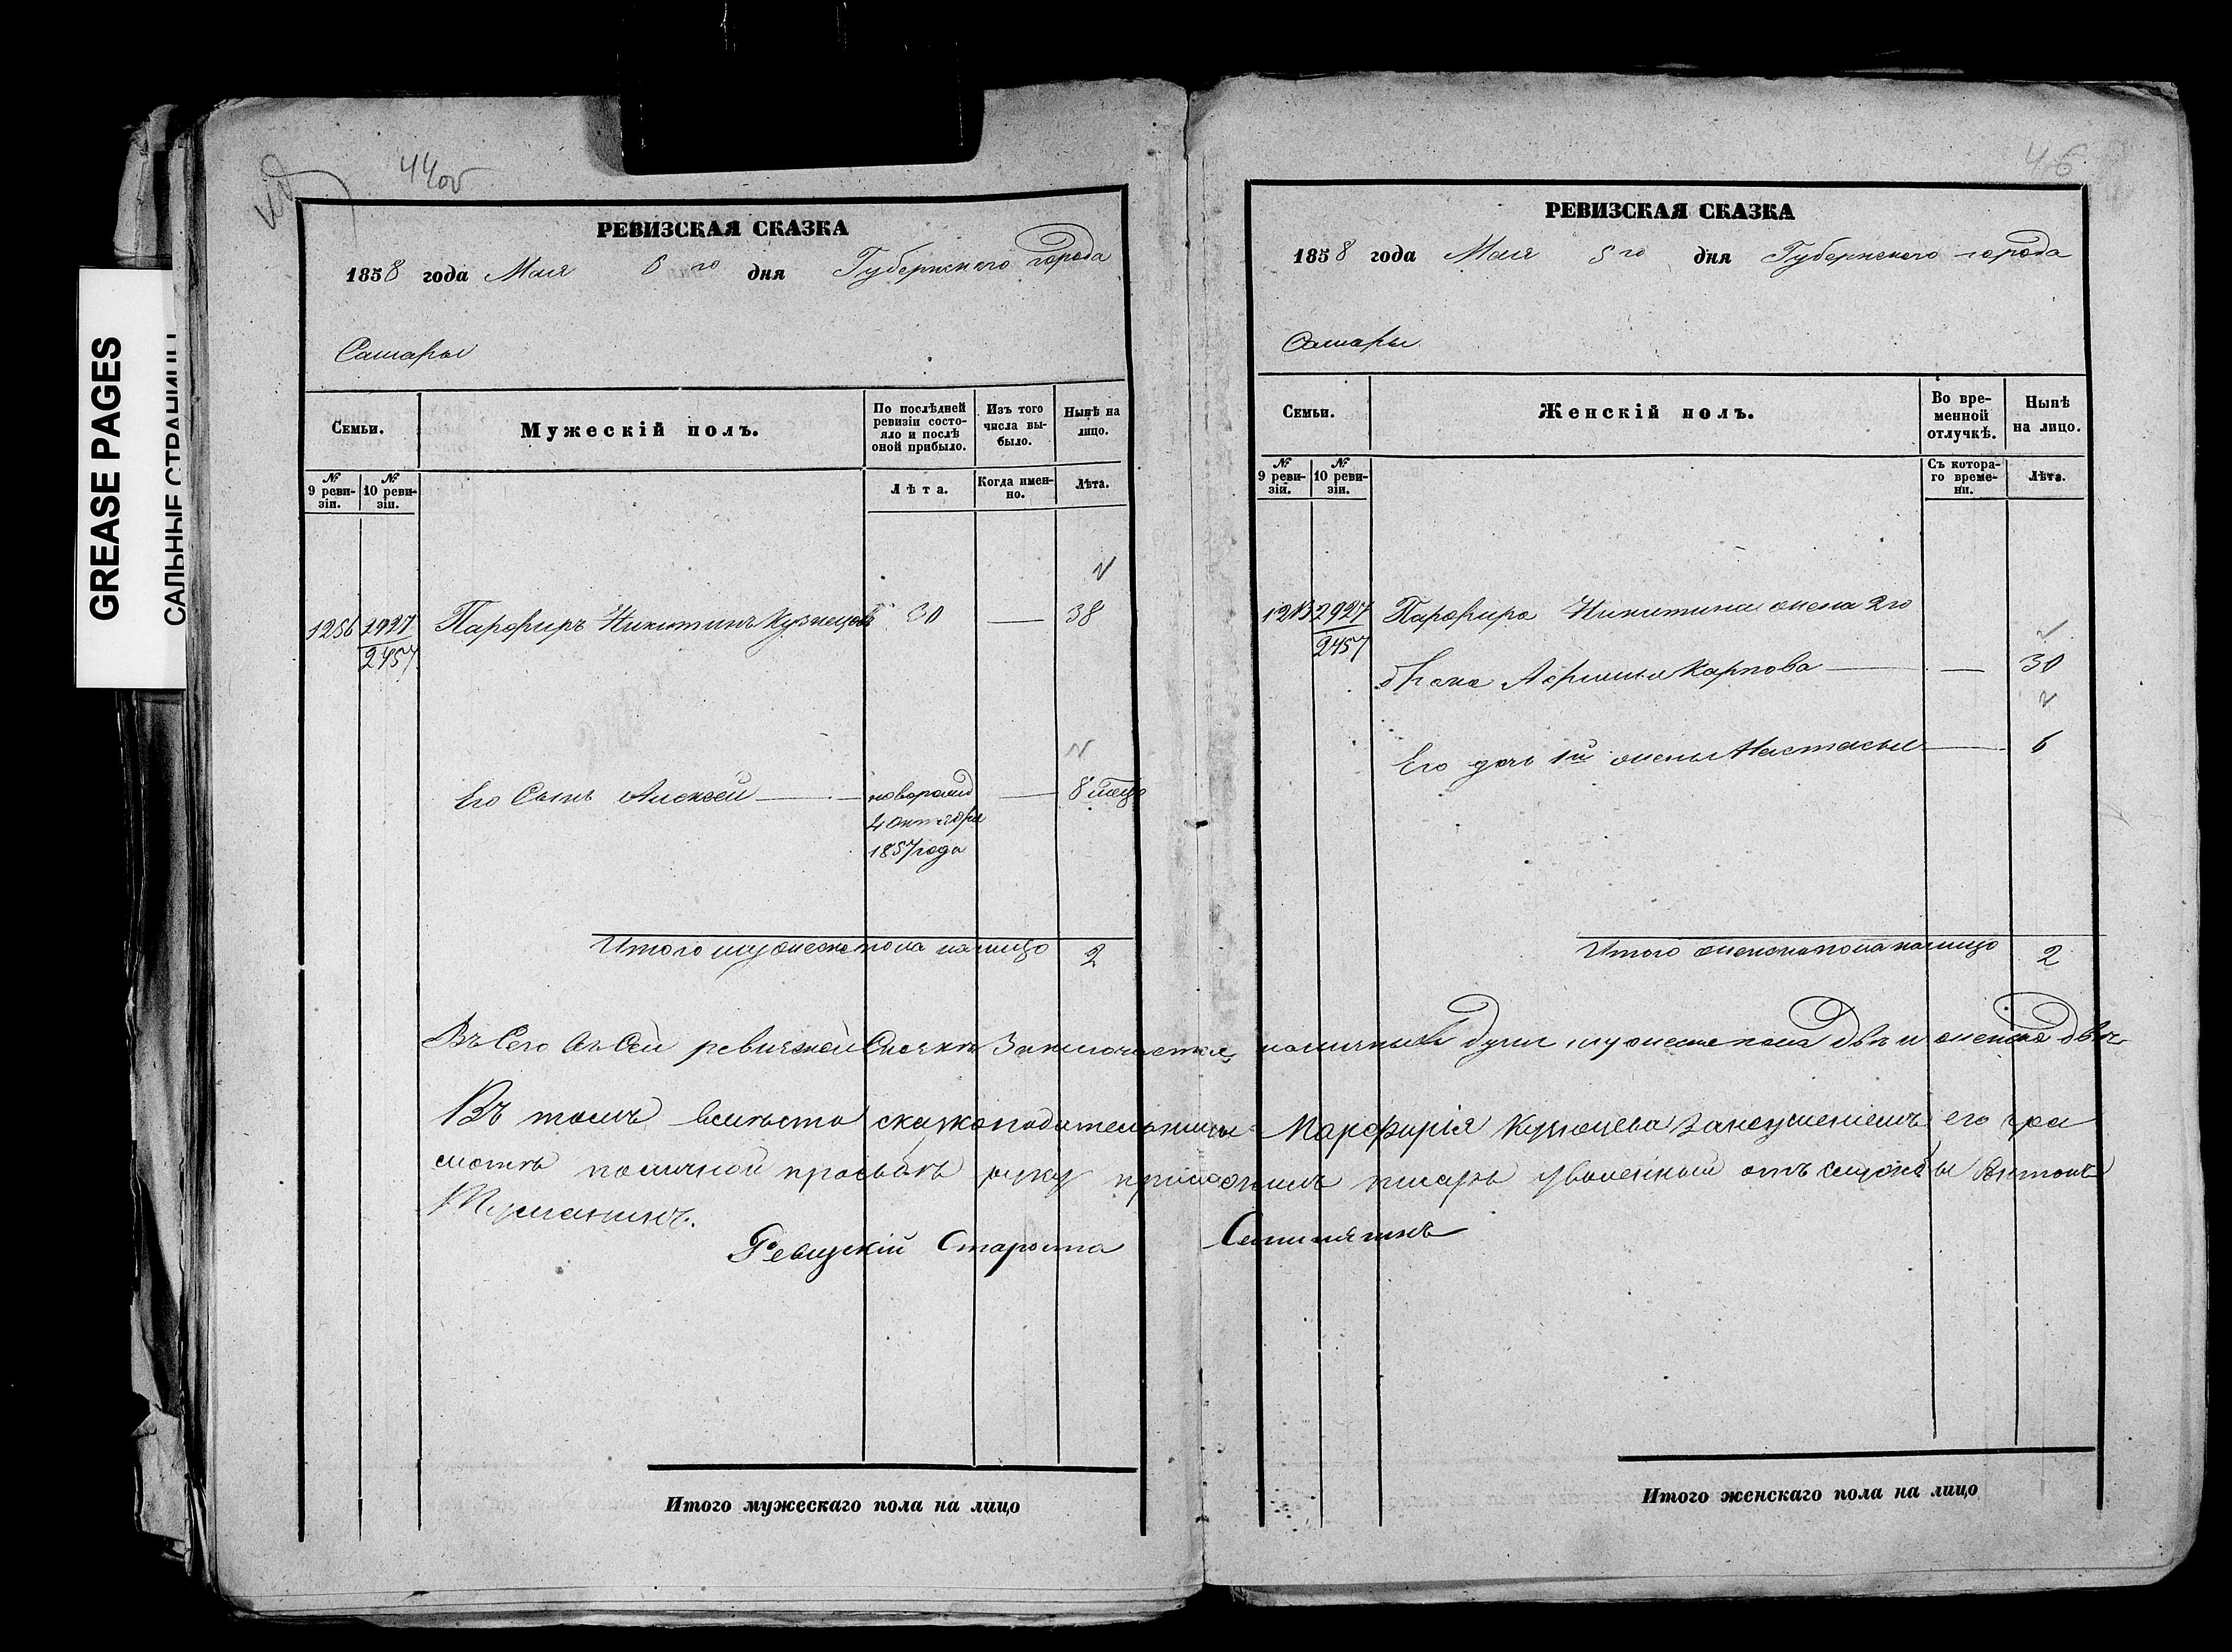 GREASE PAGES
САЛЬНЫЕ СТРАНИЦЫ
44об
РЕВИЗСКАЯ СКАЗКА
1858 года Мая 5 го дня Губернского города
Самары
Семьи.
Мужескій полъ.
По послѣдней ревизіи состояло и послѣ оной прибыло.
Изъ того числа выбыло.
Нынѣ на лицо.
№ 9 ревизіи.
№ 10 ревизіи.
Лѣта.
Когда именно.
Лѣта.
1256 2927 Парфиръ Никитинъ Кузнецовъ 30 — 38
2457
Его Сынъ Алексей — новорожд — 8 мецъ
4 октября
1857 года
Итого мужеска пола налицо 2
РЕВИЗСКАЯ СКАЗКА
1858 года Мая 5 го дня Губернского города
Самары
Семьи.
Женскій полъ.
Во временной отлучкѣ.
Нынѣ на лицо.
№ 9 ревизіи.
№ 10 ревизіи.
Съ котораго времени.
Лѣта.
2927 Парфира Никитина жена 2го
2457
брака Карпова — — 30
Его дочь 1й жены Настасья — 6
Итого женска пола налицо 2
Всего въ сей ревизской Сказкѣ Заключается наличныхъ душъ мужеска пола двѣ и женска двѣ
Въ томъ вместо сказкоподательницы Парфирія Кузнецова за неумениемъ его гра
мотѣ по личной просьбѣ руку приложилъ писарь уволенный отъ службы Антонъ
Ревизскій Староста
Итого мужескаго пола на лицо
Итого женскаго пола на лицо